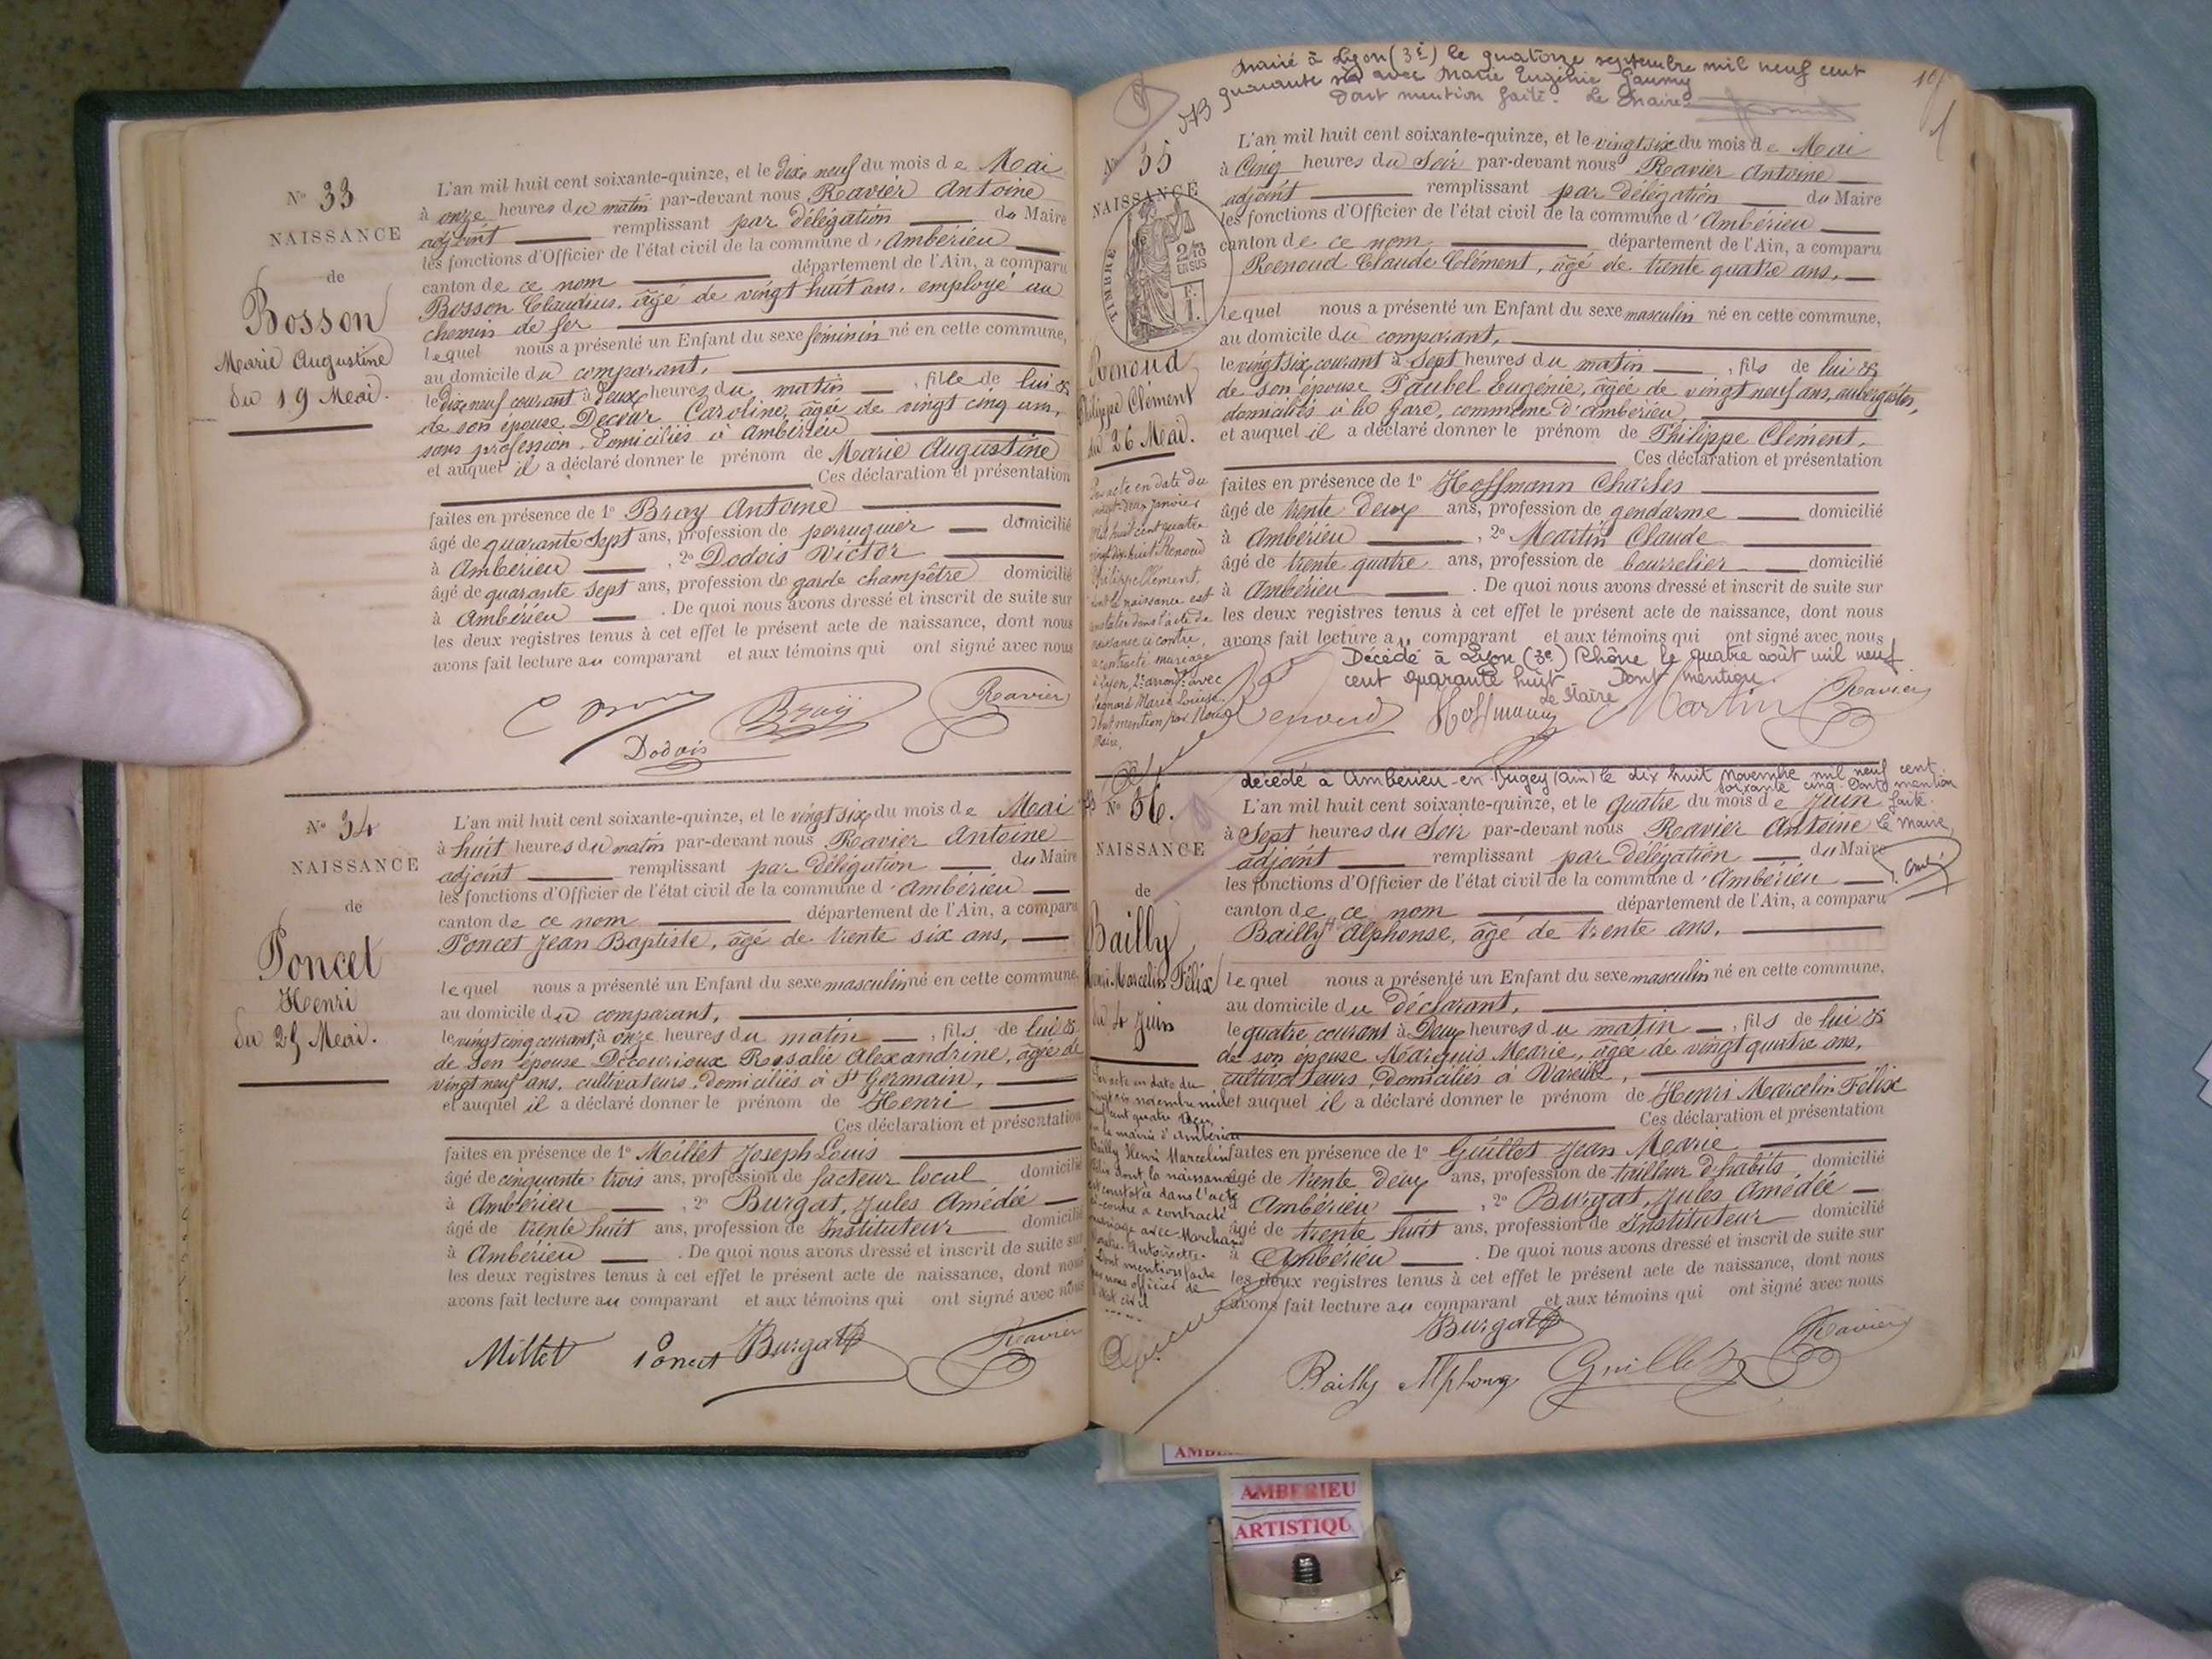 N° 33
NAISSANCE
de
Bosson
Marie Augustine
du 19 Mai.
L'an mil huit cent soixante-quinze, et le dix neuf du mois de Mai
à onze heures du matin par-devant nous Ravier Antoine
adjoint remplissant par délégation du Maire
les fonctions d'Officier de l'état civil de la commune d'Ambérieu
canton de ce nom département de l'Ain, a comparu
Bosson Claudius, âgé de vingt huit ans, employé au
chemin de fer
lequel nous a présenté un Enfant du sexe féminin né en cette commune,
au domicile du comparant,
le dix neuf courant à deux heures du matin, fille de lui &
de son épouse Caroline, âgée de vingt cinq ans,
sans profession, domiciliés à Ambérieu
et auquel il a déclaré donner le prénom de Marie Augustine
Ces déclaration et présentation
faites en présence de 1° Bray Antoine
âgé de quarante sept ans, profession de perruquier domicilié
à Ambérieu, 2° Dodois Victor
âgé de quarante sept ans, profession de garde champêtre domicilié
à Ambérieu. De quoi nous avons dressé et inscrit de suite sur
les deux registres tenus à cet effet le présent acte de naissance, dont nous
avons fait lecture au comparant et aux témoins qui ont signé avec nous
Bray Ravier
Dodois
N° 34
NAISSANCE
de
Poncet
Henri
du 25 Mai.
L'an mil huit cent soixante-quinze, et le vingt six du mois de Mai
à huit heures du matin par-devant nous Ravier Antoine
adjoint remplissant par délégation du Maire
les fonctions d'Officier de l'état civil de la commune d'Ambérieu
canton de ce nom département de l'Ain, a comparu
Poncet Jean Baptiste, âgé de trente six ans,
lequel nous a présenté un Enfant du sexe masculin né en cette commune,
au domicile du comparant,
le vingt cinq courant, à onze heures du matin, fils de lui &
de son épouse Décourioux Rosalie Alexandrine, âgée de
vingt neuf ans, cultivateurs, domiciliés à St Germain,
et auquel il a déclaré donner le prénom de Henri
Ces déclaration et présentation
faites en présence de 1° Millet Joseph Louis
âgé de cinquante trois ans, profession de facteur local domicilié
à Ambérieu, 2° Burgat, Jules Amédée
âgé de trente huit ans, profession de Instituteur domicilié
à Ambérieu. De quoi nous avons dressé et inscrit de suite sur
les deux registres tenus à cet effet le présent acte de naissance, dont nous
avons fait lecture au comparant et aux témoins qui ont signé avec nous
Millet Poncet Burgat Ravier
Marié à Lyon (3e) le quatorze septembre mil neuf cent
quarante avec Marie Eugénie Gaumy
Dont mention faite. Le Maire
N° 35
NAISSANCE
TIMBRE
2/10
EN SUS
Renoud
Philippe Clément
du 26 Mai.
L'an mil huit cent soixante-quinze, et le vingt six du mois de Mai
à Cinq heures du Soir par-devant nous Ravier Antoine
adjoint remplissant par délégation du Maire
les fonctions d'Officier de l'état civil de la commune d'Ambérieu
canton de ce nom département de l'Ain, a comparu
Renoud Claude Clément, âgé de trente quatre ans,
lequel nous a présenté un Enfant du sexe masculin né en cette commune,
au domicile du comparant,
le vingt six courant à Sept heures du matin, fils de lui &
de son épouse Paubel Eugénie, âgée de vingt neuf ans, aubergistes,
domiciliés à la Gare, commune d'Ambérieu,
et auquel il a déclaré donner le prénom de Philippe Clément.
Ces déclaration et présentation
faites en présence de 1° Hoffmann Charles
âgé de trente deux ans, profession de gendarme domicilié
à Ambérieu, 2° Martin Claude
âgé de trente quatre ans, profession de bourrelier domicilié
à Ambérieu. De quoi nous avons dressé et inscrit de suite sur
les deux registres tenus à cet effet le présent acte de naissance, dont nous
avons fait lecture au comparant et aux témoins qui ont signé avec nous
Par acte en date du
vingt-deux janvier
mil huit cent quatre
vingt dix huit Renoud
Philippe Clément,
dont la naissance est
constatée dans l'acte de
naissance ci contre,
a contracté mariage
à Lyon, 2e arrondt avec
Marie Louise.
Dont mention par Nous
Maire,
Décédé à Lyon (3e) Rhône le quatre août mil neuf
cent quarante huit Dont mention.
Le Maire
Renoud Hoffmann Martin Ravier
décédé à Ambérieu-en-Bugey (Ain) le dix huit novembre mil neuf cent
soixante cinq. Dont mention
faite.
Le Maire
N° 36.
NAISSANCE
de
Bailly
Henri Marcelin Félix
du 4 Juin
L'an mil huit cent soixante-quinze, et le quatre du mois de Juin
à Sept heures du Soir par-devant nous Ravier Antoine
adjoint remplissant par délégation du Maire
les fonctions d'Officier de l'état civil de la commune d'Ambérieu
canton de ce nom département de l'Ain, a comparu
Bailly Alphonse, âgé de trente ans.
lequel nous a présenté un Enfant du sexe masculin né en cette commune,
au domicile du Déclarant,
le quatre courant à Deux heures du matin, fils de lui &
de son épouse Marquis Marie, âgée de vingt quatre ans,
cultivateurs, domiciliés à Vareille,
et auquel il a déclaré donner le prénom de Henri Marcelin Félix
Ces déclaration et présentation
faites en présence de 1° Guillet Jean Marie
âgé de trente deux ans, profession de tailleur d'habits, domicilié
à Ambérieu, 2° Burgat, Jules Amédée
âgé de trente huit ans, profession de Instituteur domicilié
à Ambérieu. De quoi nous avons dressé et inscrit de suite sur
les deux registres tenus à cet effet le présent acte de naissance, dont nous
avons fait lecture au comparant et aux témoins qui ont signé avec nous
Par acte en date du
novembre mil
neuf cent quatre
à la mairie d'Ambérieu
Bailly Henri Marcelin
Félix dont la naissance
est constatée dans l'acte
ci-contre a contracté
mariage avec Marchand
Antoinette.
Dont mention faite
par nous officier de
l'état civil
Burgat
Bailly Alphonse Guillet Ravier
AMBERIEU
ARTISTIQU